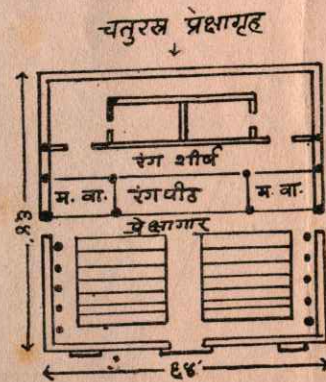 चतुरस्र प्रेक्षागृह
रंग शीर्ष
म. वा. रंगपीठ म. वा.
प्रेक्षागार
६४'
६४'